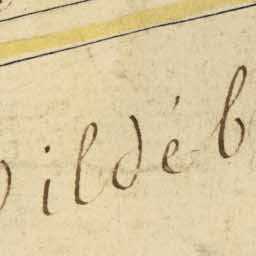 ildéb